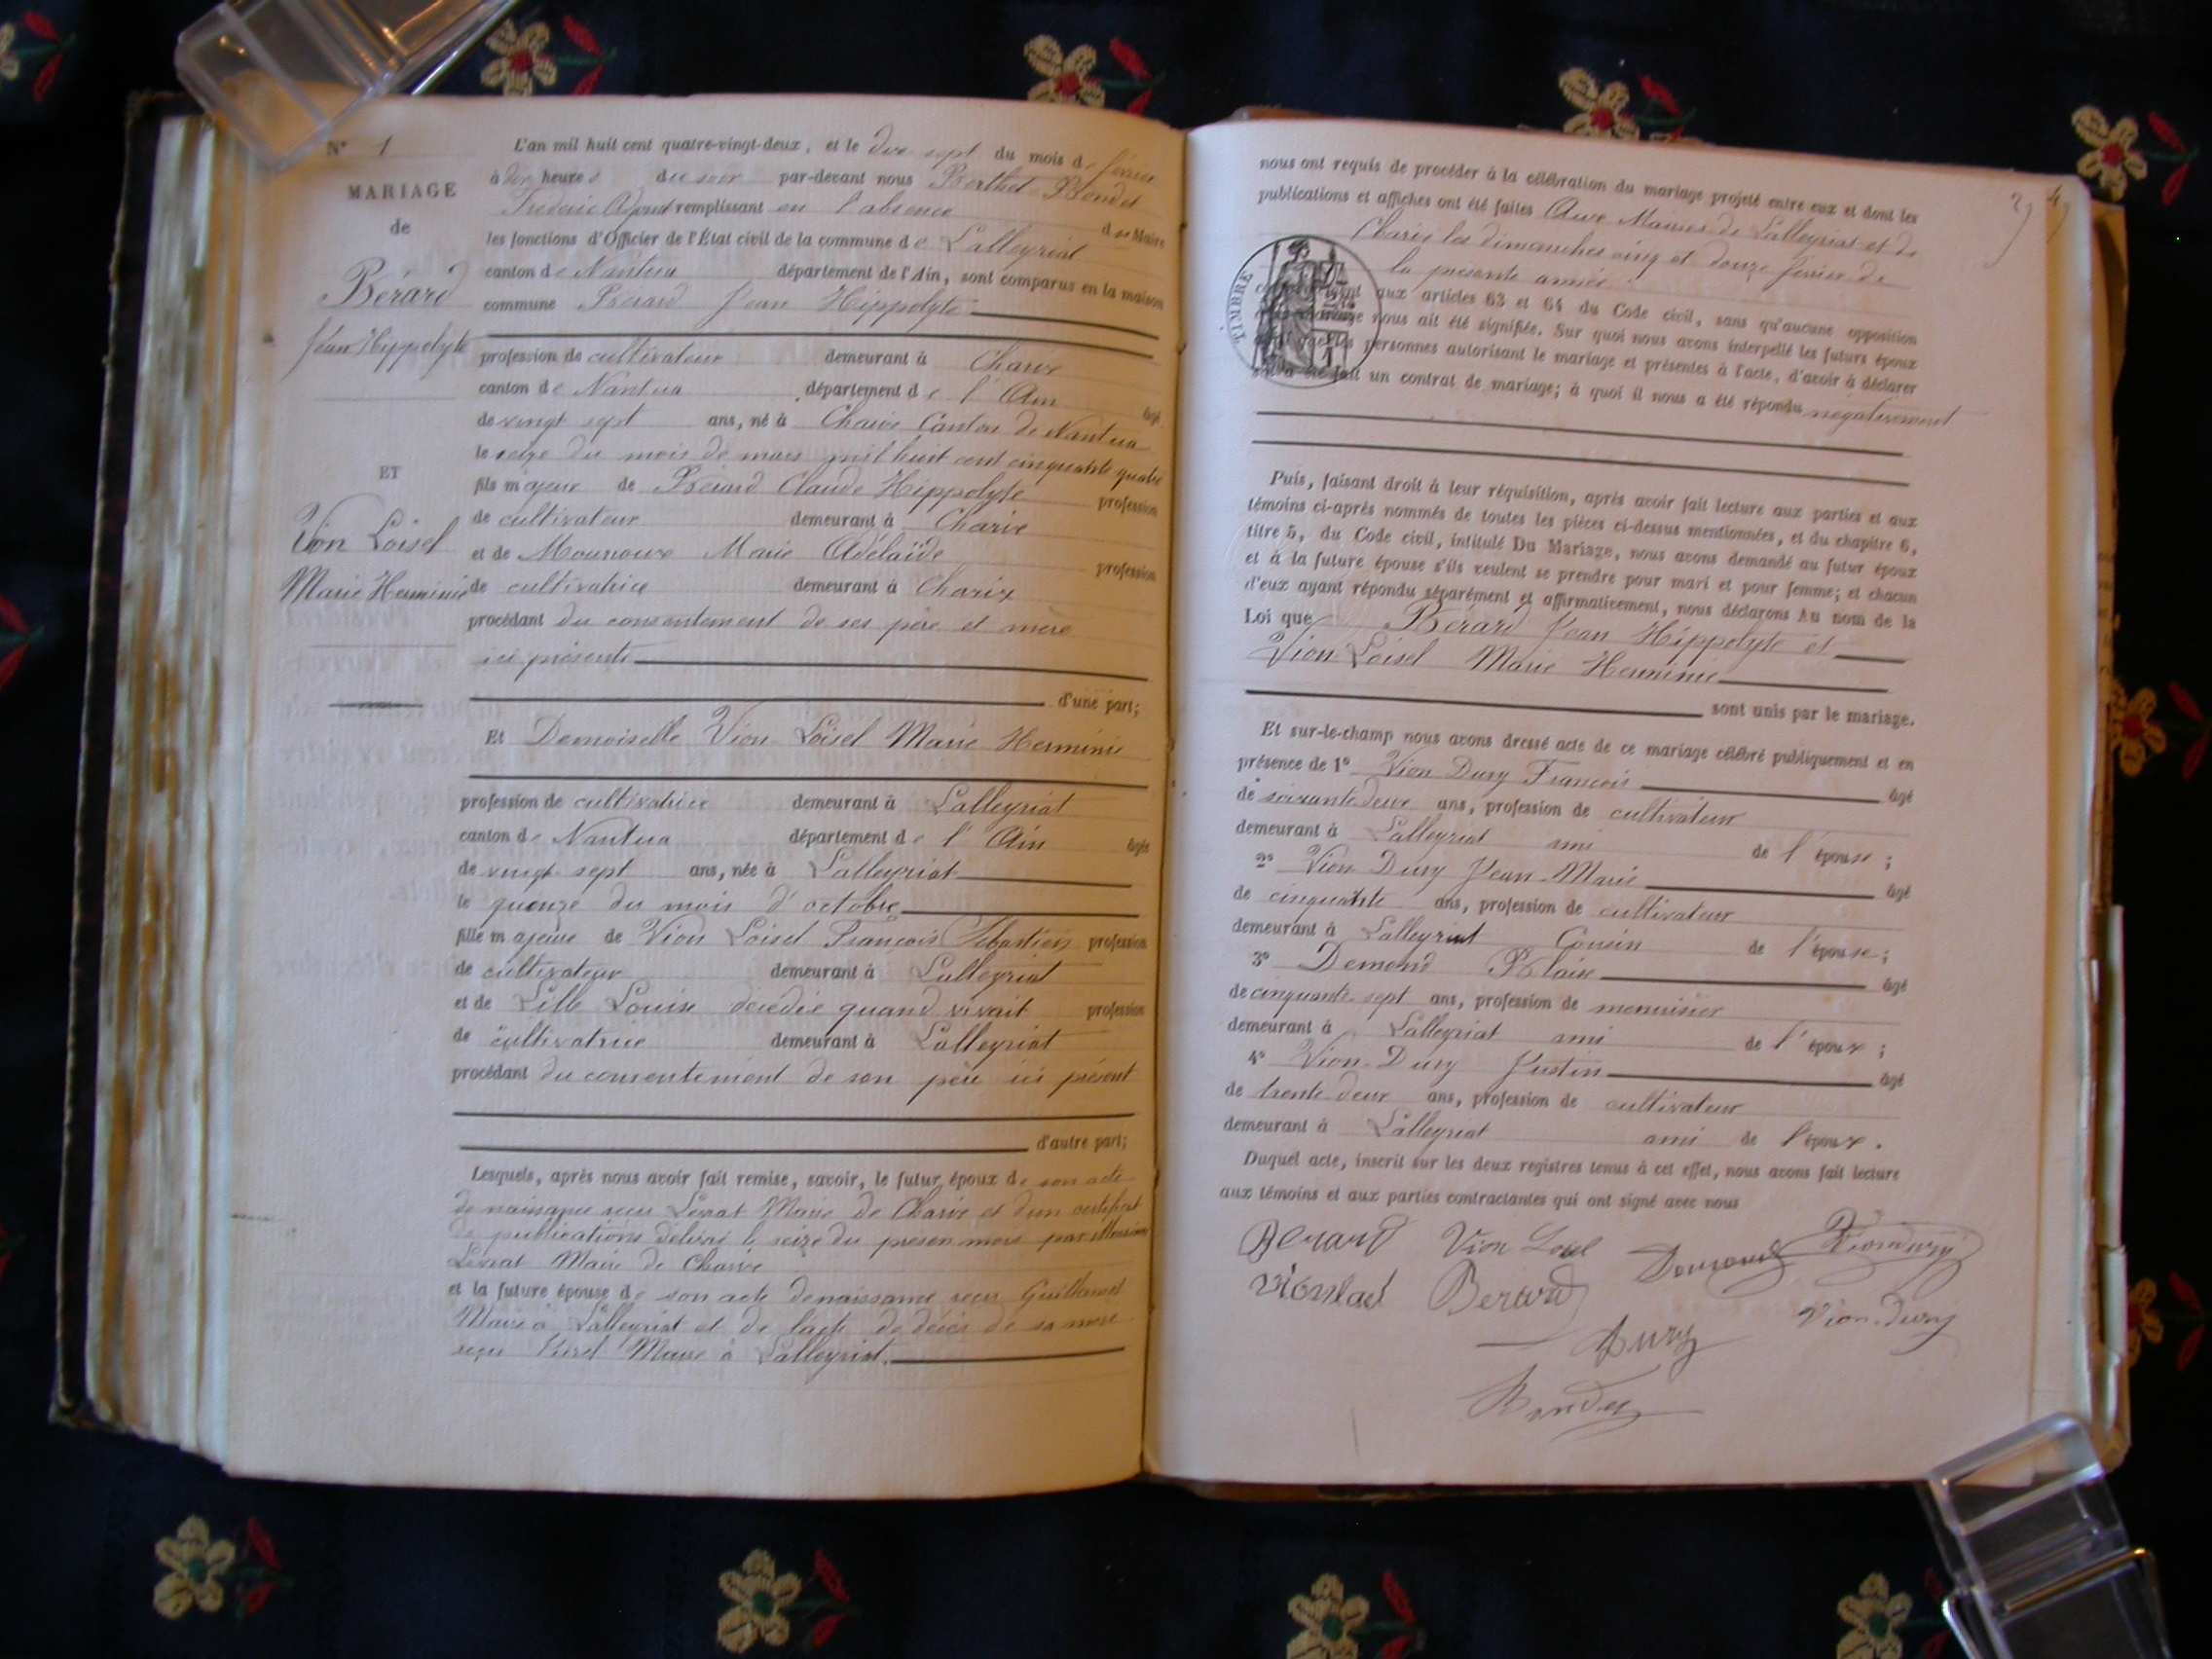 N° 1
MARIAGE
de
Bérard
Jéan Hyppolyte
ET
Vion Loisel
Marie Herminie
L'an mil huit cent quatre-vingt-deux, et le dix sept du mois de février
à dix heures du soir par-devant nous Berthet Bondet
Frederic Adjoint remplissant en l'absence du Maire
les fonctions d'Officier de l'État civil de la commune de Lalleyriat
canton de Nantua département de l'Ain, sont comparus en la maison
commune Bérard Jean Hippolyte
profession de cultivateur demeurant à Charix
canton de Nantua département de l'Ain âgé
de vingt sept ans, né à Charix Canton de Nantua
le seize du mois de mars mil huit cent cinquante quatre
fils majeur de Bérard Claude Hippolyte profession
de cultivateur demeurant à Charix
et de Mounoux Marie Adélaïde profession
de cultivatrice demeurant à Charix
procédant du consentement de ses père et mère
ici présents
d'une part;
Et Demoiselle Vion-Loisel Marie Herminie
profession de cultivatrice demeurant à Lalleyriat
canton de Nantua département de l'Ain âgée
de vingt sept ans, née à Lalleyriat
le quinze du mois d'octobre
fille majeure de Vion Loisel François Sébastien profession
de cultivateur demeurant à Lalleyriat
et de Lille Louise décédée quand vivait profession
de cultivatrice demeurant à Lalleyriat
procédant du consentement de son père ici présent
d'autre part;
Lesquels, après nous avoir fait remise, savoir, le futur époux de son acte
de naissance reçu Levrat Maire de Charix et d'un certificat
de publications délivré le seize du présen mois par Monsieur
Levrat Maire de Charix
et la future épouse de son acte de naissance reçu Guillermet
Maire à Lalleyriat et de l'acte de décès de sa mère
reçu Maire à Lalleyriat.
nous ont requis de procéder à la célébration du mariage projeté entre eux et dont les
publications et affiches ont été faites Aux Mairies de Lalleyriat et de
Charix les dimanches cinq et douze février de
la présente année
TIMBRE
aux articles 63 et 64 du Code civil, sans qu'aucune opposition
nous ait été signifiée. Sur quoi nous avons interpellé les futurs époux
personnes autorisant le mariage et présentes à l'acte, d'avoir à déclarer
fait un contrat de mariage; à quoi il nous a été répondu négativement
Puis, faisant droit à leur réquisition, après avoir fait lecture aux parties et aux
témoins ci-après nommés de toutes les pièces ci-dessus mentionnées, et du chapitre 6,
titre 5, du Code civil, intitulé Du Mariage, nous avons demandé au futur époux
et à la future épouse s'ils veulent se prendre pour mari et pour femme; et chacun
d'eux ayant répondu séparément et affirmativement, nous déclarons Au nom de la
Loi que Bérard Jean Hippolyte et
Vion-Loisel Marie Herminie
sont unis par le mariage.
Et sur-le-champ nous avons dressé acte de ce mariage célébré publiquement et en
présence de 1° Vion Dury François âgé
de soixante deux ans, profession de cultivateur
demeurant à Lalleyriat ami de l'épouse;
2° Vion Dury Jean-Marie âgé
de cinquante ans, profession de cultivateur
demeurant à Lalleyriat Cousin de l'épouse;
3° Demond Blaise âgé
de cinquante-sept ans, profession de menuisier
demeurant à Lalleyriat ami de l'époux;
4° Vion-Dury Justin âgé
de trente deux ans, profession de cultivateur
demeurant à Lalleyriat ami de l'époux.
Duquel acte, inscrit sur les deux registres tenus à cet effet, nous avons fait lecture
aux témoins et aux parties contractantes qui ont signé avec nous
Berard Vion Demond Viondury
Berard Vion-Dury
Dury
Bondet